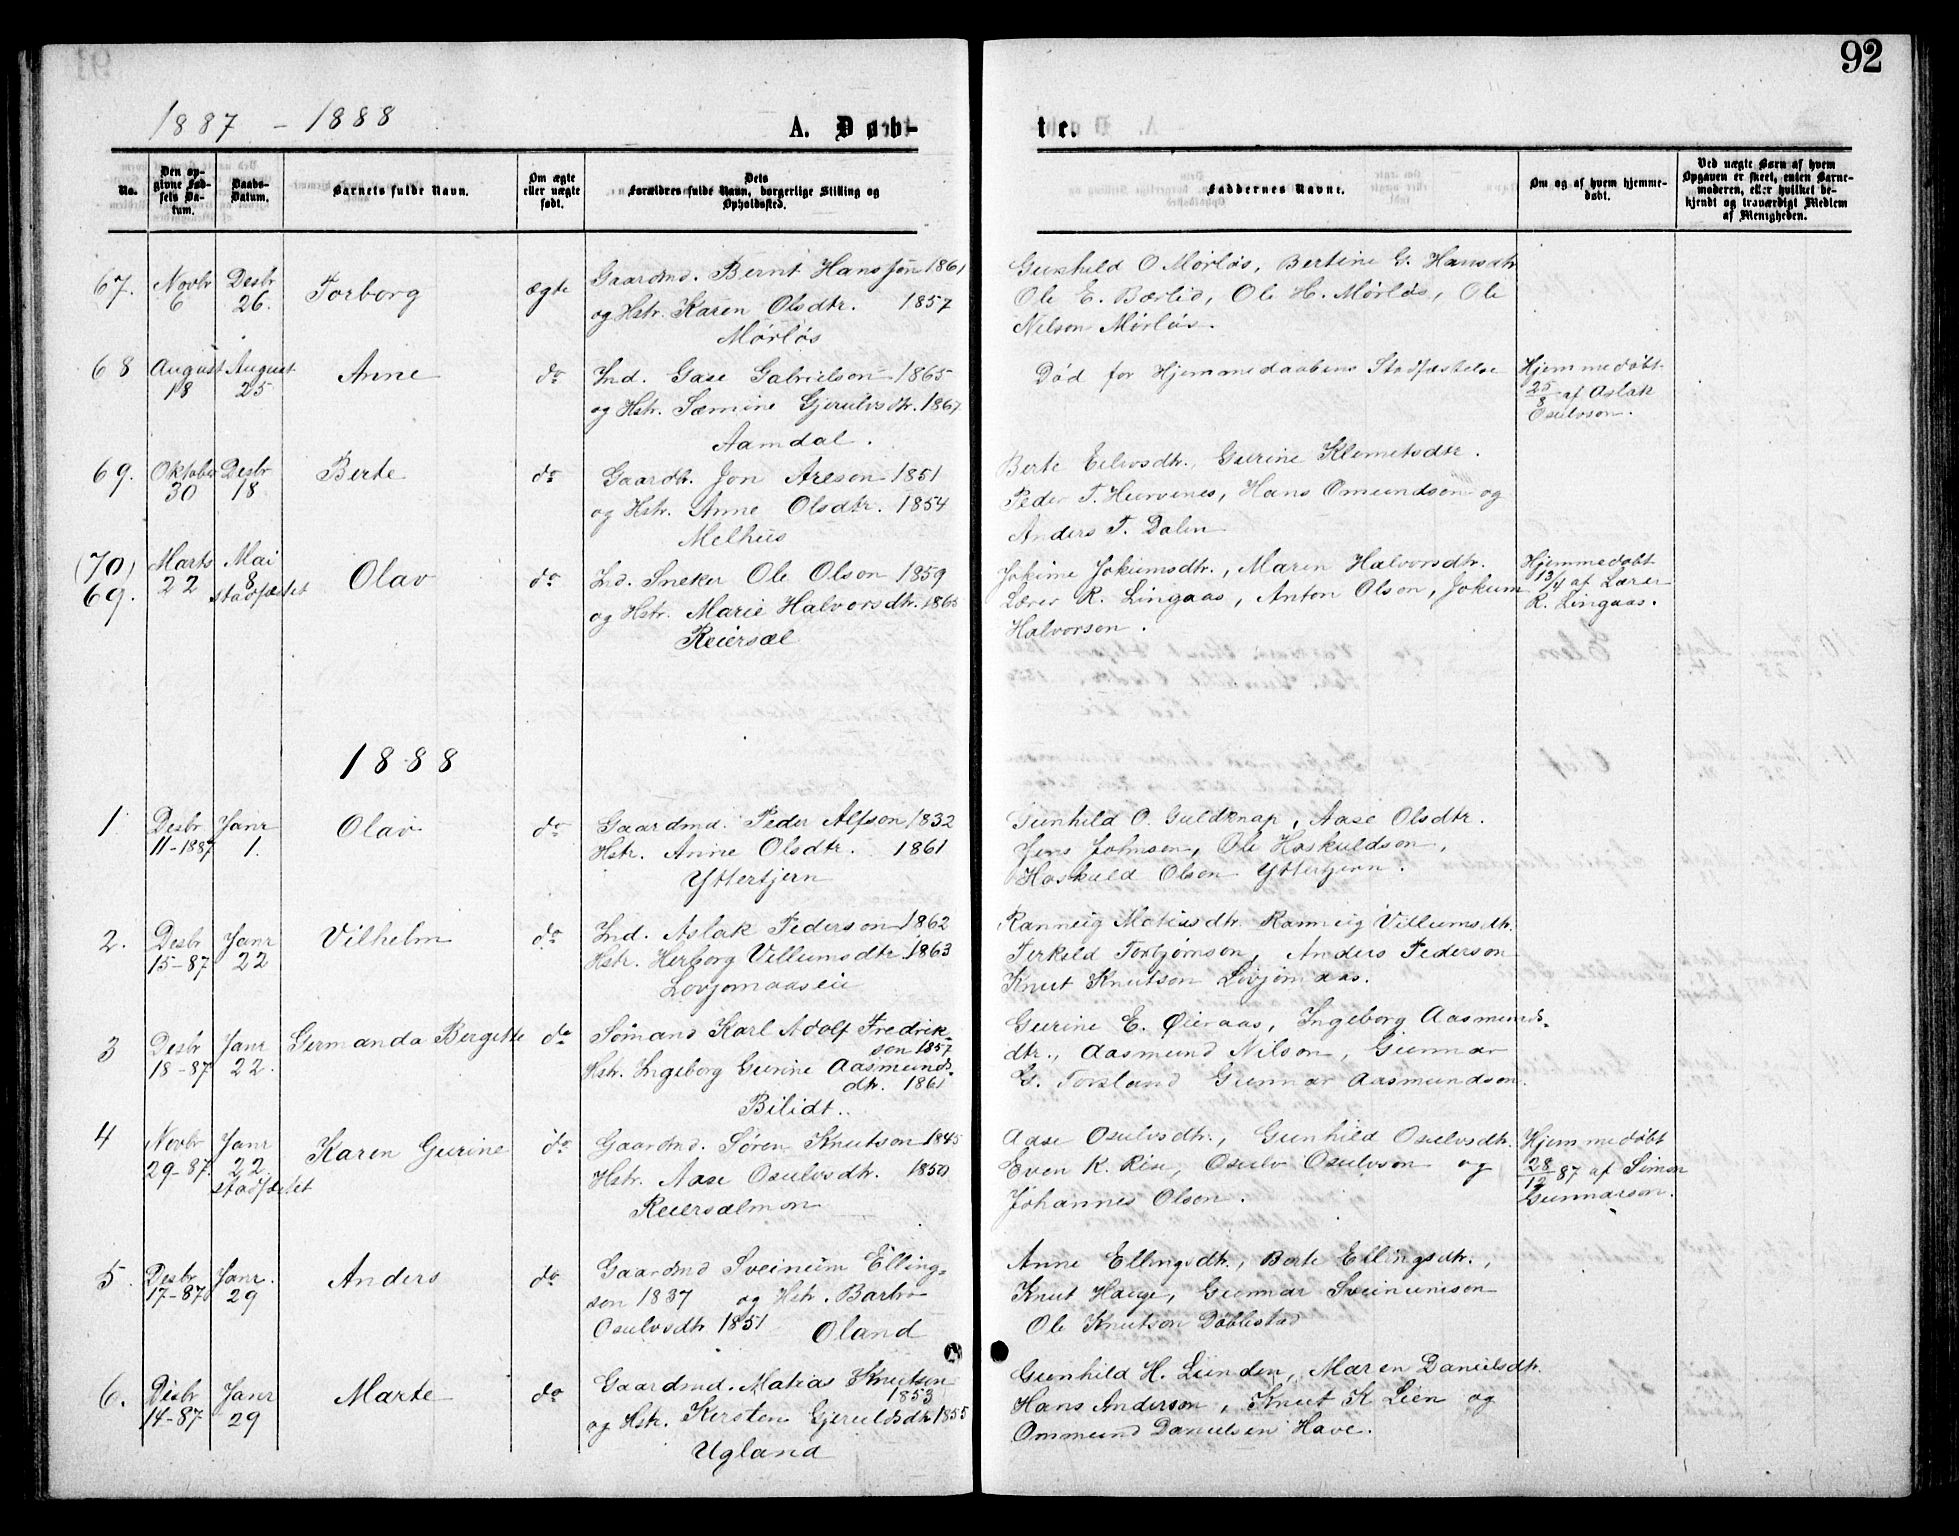 92
1887 - 1888
A. Døb-
te.
No.
Den op-
givne Fød-
sels Da-
tum.
Daabs-
Datum.
Barnets fulde Navn.
Om ægte
eller uægte
født.
Dets
Forældres fulde Navn, borgerlige Stilling og
Opholdssted.
Faddernes Navne.
Om og af hvem hjemme-
døbt.
Ved uægte Børn af hvem
Opgaven er skeet, enten Barne-
moderen, eller hvilket be-
kjendt og troværdigt Medlem
af Menigheden.
67. Novbr 6 Desbr 26. Torborg ægte
Gaardmd. Bernt Hansson 1861
og Hstr. Karen Olsdtr. 1857
Mørløs
Gunhild O Mørløs, Bertine G. Hansdtr
Ole E. Bærlid, Ole H. Mørløs, Ole
Nilson Mørløs.
68 August 18 August 25 Anne do
Ind. Gase Gabrielson 1865
og Hstr. Semine Gjerulvsdtr. 1867
Aamdal.
Død for Hjemmedaabens Stadfæstelse
Hjemmedøbt
25/8 af Aslak
Osulvson.
69. Oktober 30 Desbr 18 Berte do
Gaardb. Jon Areson 1851
og Hstr. Anne Olsdtr. 1854
Melhus
Berte Eilivsdtr., Gurine Klemetsdtr.
Peder T. Hurvenes, Hans Omundson og
Anders T. Dalen
(70) 69. Marts 22 Mai 8 stadfæstet Olav do
Ind. Sneker Ole Olson 1859
og Hstr. Marie Halvorsdtr. 1865
Reiersæl
Jokime Jokumsdtr., Maren Halvorsdtr.
Lærer R. Lingaas, Anton Olson, Jokum
Halvorson.
Hjemmedøbt
13/4 af Lærer
R. Lingaas.
1888
1 Desbr 11-1887 Janr 1. Olav do
Gaardmd. Peder Alfson 1832
Hstr. Anne Olsdtr. 1861
Yttertjern
Gunhild O. Guldknap, Aase Olsdtr.
Jens Johnsen, Ole Hoskuldson,
Hoskuld Olson Yttertjern.
2. Desbr 15-87 Janr 22 Vilhelm do
Ind. Aslak Pederson 1862
Hstr. Herborg Villumsdtr. 1863
Ranneig Villumsdtr.
Terkild Torbjørnson, Anders Pederson
Knut Knutson
3 Desbr 18-87 Janr 22. Germanda Bergitte do
Sømand Karl Adolf Fredrik-
son 1857
Hstr. Ingeborg Gurine Aasmunds-
dtr. 1861
Bilidt.
Gurine E. Øieraas, Ingeborg Aasmunds-
dtr., Aasmund Nilson, Gunnar
G. Torsland Gunnar Aasmundson.
4 Novbr 29-87. Janr 22. stadfæstet Karen Gurine do
Gaardmd. Søren Knutson 1845
Hstr. Aase Osulvsdtr. 1850
Reiersælmon
Aase Osulvsdtr., Gunhild Osulvsdtr.
Even K. Rise, Osulv Osulvson og
Johannes Olson.
Hjemmedøbt
28/12 87 af Simon
Gunnarson.
5. Desbr 17-87 Janr. 29 Anders do
Gaardmd Sveinum Elling-
son 1837 og Hstr. Barbro
Osulvsdtr 1851 Oland
Anne Ellingsdtr., Berte Ellingsdtr.,
Knut Hauge, Gunnar Sveinumson
Ole Knutson Døblestad
6. Desbr 14-87 Janr 29 Marte do
Gaardmd. Matias Knutson
1853
og Hstr. Kirsten Gjerulvsdtr 1855
Ugland
Gunhild H. Lunden, Maren Danielsdtr.
Hans Anderson, Knut K Lien og
Ommund Danielsen Have.